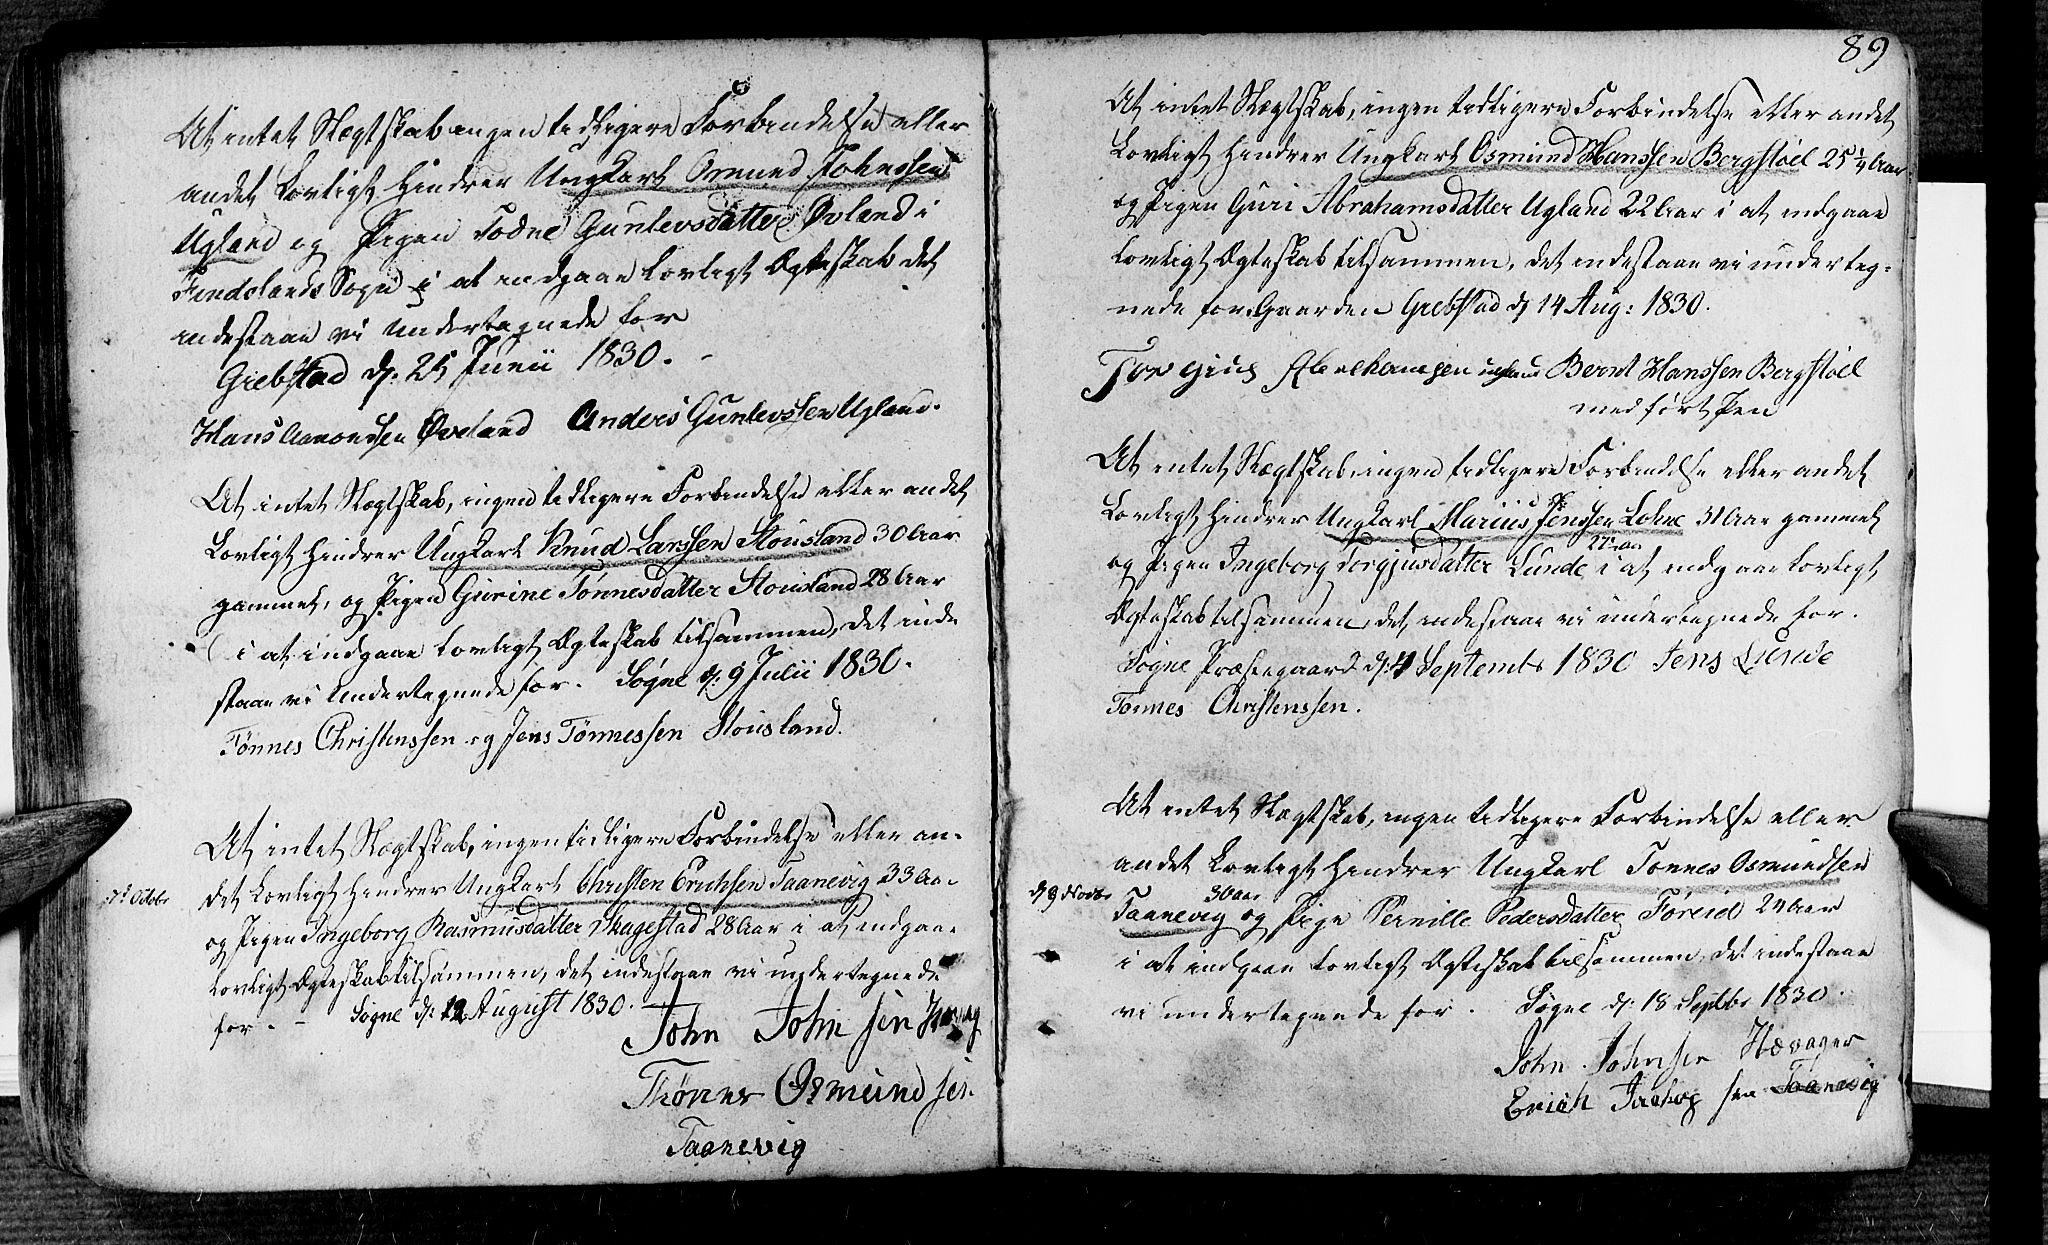 At intet Slægtskab ingen tidligere Forbindelse eller
andet Lovligt Hindrer Ungkarl Osmund Johnssen
Ugland og Pigen Todne Gunlevsdatter Øvland i
Findelands Sogn i at indgaae Lovligt Ægteskab det
indestaae vi undertegnede for
Grebstad d: 25 Junii 1830. -
Hans Aamondssen Øveland Anders Gunlevssen Ugland.
At intet Slægtskab, ingen tidligere Forbindelse eller andet
Lovligt Hindrer Ungkarl Knud Larssen Stousland 30 Aar
gammel, og Pigen Gurine Tønnesdatter Stousland 28 Aar
i at indgaae Lovligt Ægteskab tilsammen, det inde
staae vi undertegnede for. Søgne d: 9 Julii 1830.
Tønnes Christenssen og Jens Tønnessen Stousland.
At intet Slægtskab, ingen tidligere Forbindelse eller an-
7d Octobr
det Lovligt Hindrer Ungkarl Christen Erichsen Taanevig 33 Aar
og Pigen Ingeborg Rasmusdatter Skagestad 28 Aar i at indgaae
Lovligt Ægteskab tilsammen, det indestaae vi undertegnede
for. - Søgne d: 12 August 1830.
John Johnsen
Thønes Osmundsen
Taanevig
89
At intet Slægtskab, ingen tidligere Forbindelse eller andet
Lovligt Hindrer Ungkarl Osmund Hanssen Bergstøel 25 1/4 Aar
og Pigen Guri Abrahamsdatter Ugland 22 Aar i at indgaae
Lovligt Ægteskab tilsammen, det indestaae vi underteg-
nede for. Gaarden Grebstad d 14 Aug: 1830.
Torgius Abrahamsen ugland Bernt Hanssen Bergstøel
med ført Pen
At intet Slægtskab ingen tidligere Forbindelse eller andet
Lovligt Hindrer Ungkarl Marius Jenssen Lohne 31 Aar gammel
og Pigen Ingeborg Torgjusdatter Lunde i at indgaae Lovligt
Ægteskab tilsammen, det indestaae vi undertegnede for.
Søgne Præstegaard d: 4 Septembr 1830 Jens Lunde
Tønnes Christenssen.
At intet Slægtskab, ingen tidligere Forbindelse eller
andet Lovligt Hindrer Ungkarl Tønnes Osmundsen
d 9 Novbr
30 Aar
Taanevig og Pige Pernille Pedersdatter Føreid 24 Aar
i at indgaae Lovligt Ægteskab tilsammen, det indestaae
vi undertegnede for. Søgne d: 18 Septbr 1830.
John Johnsen Høvager
Erich Jachobsen Taanevig